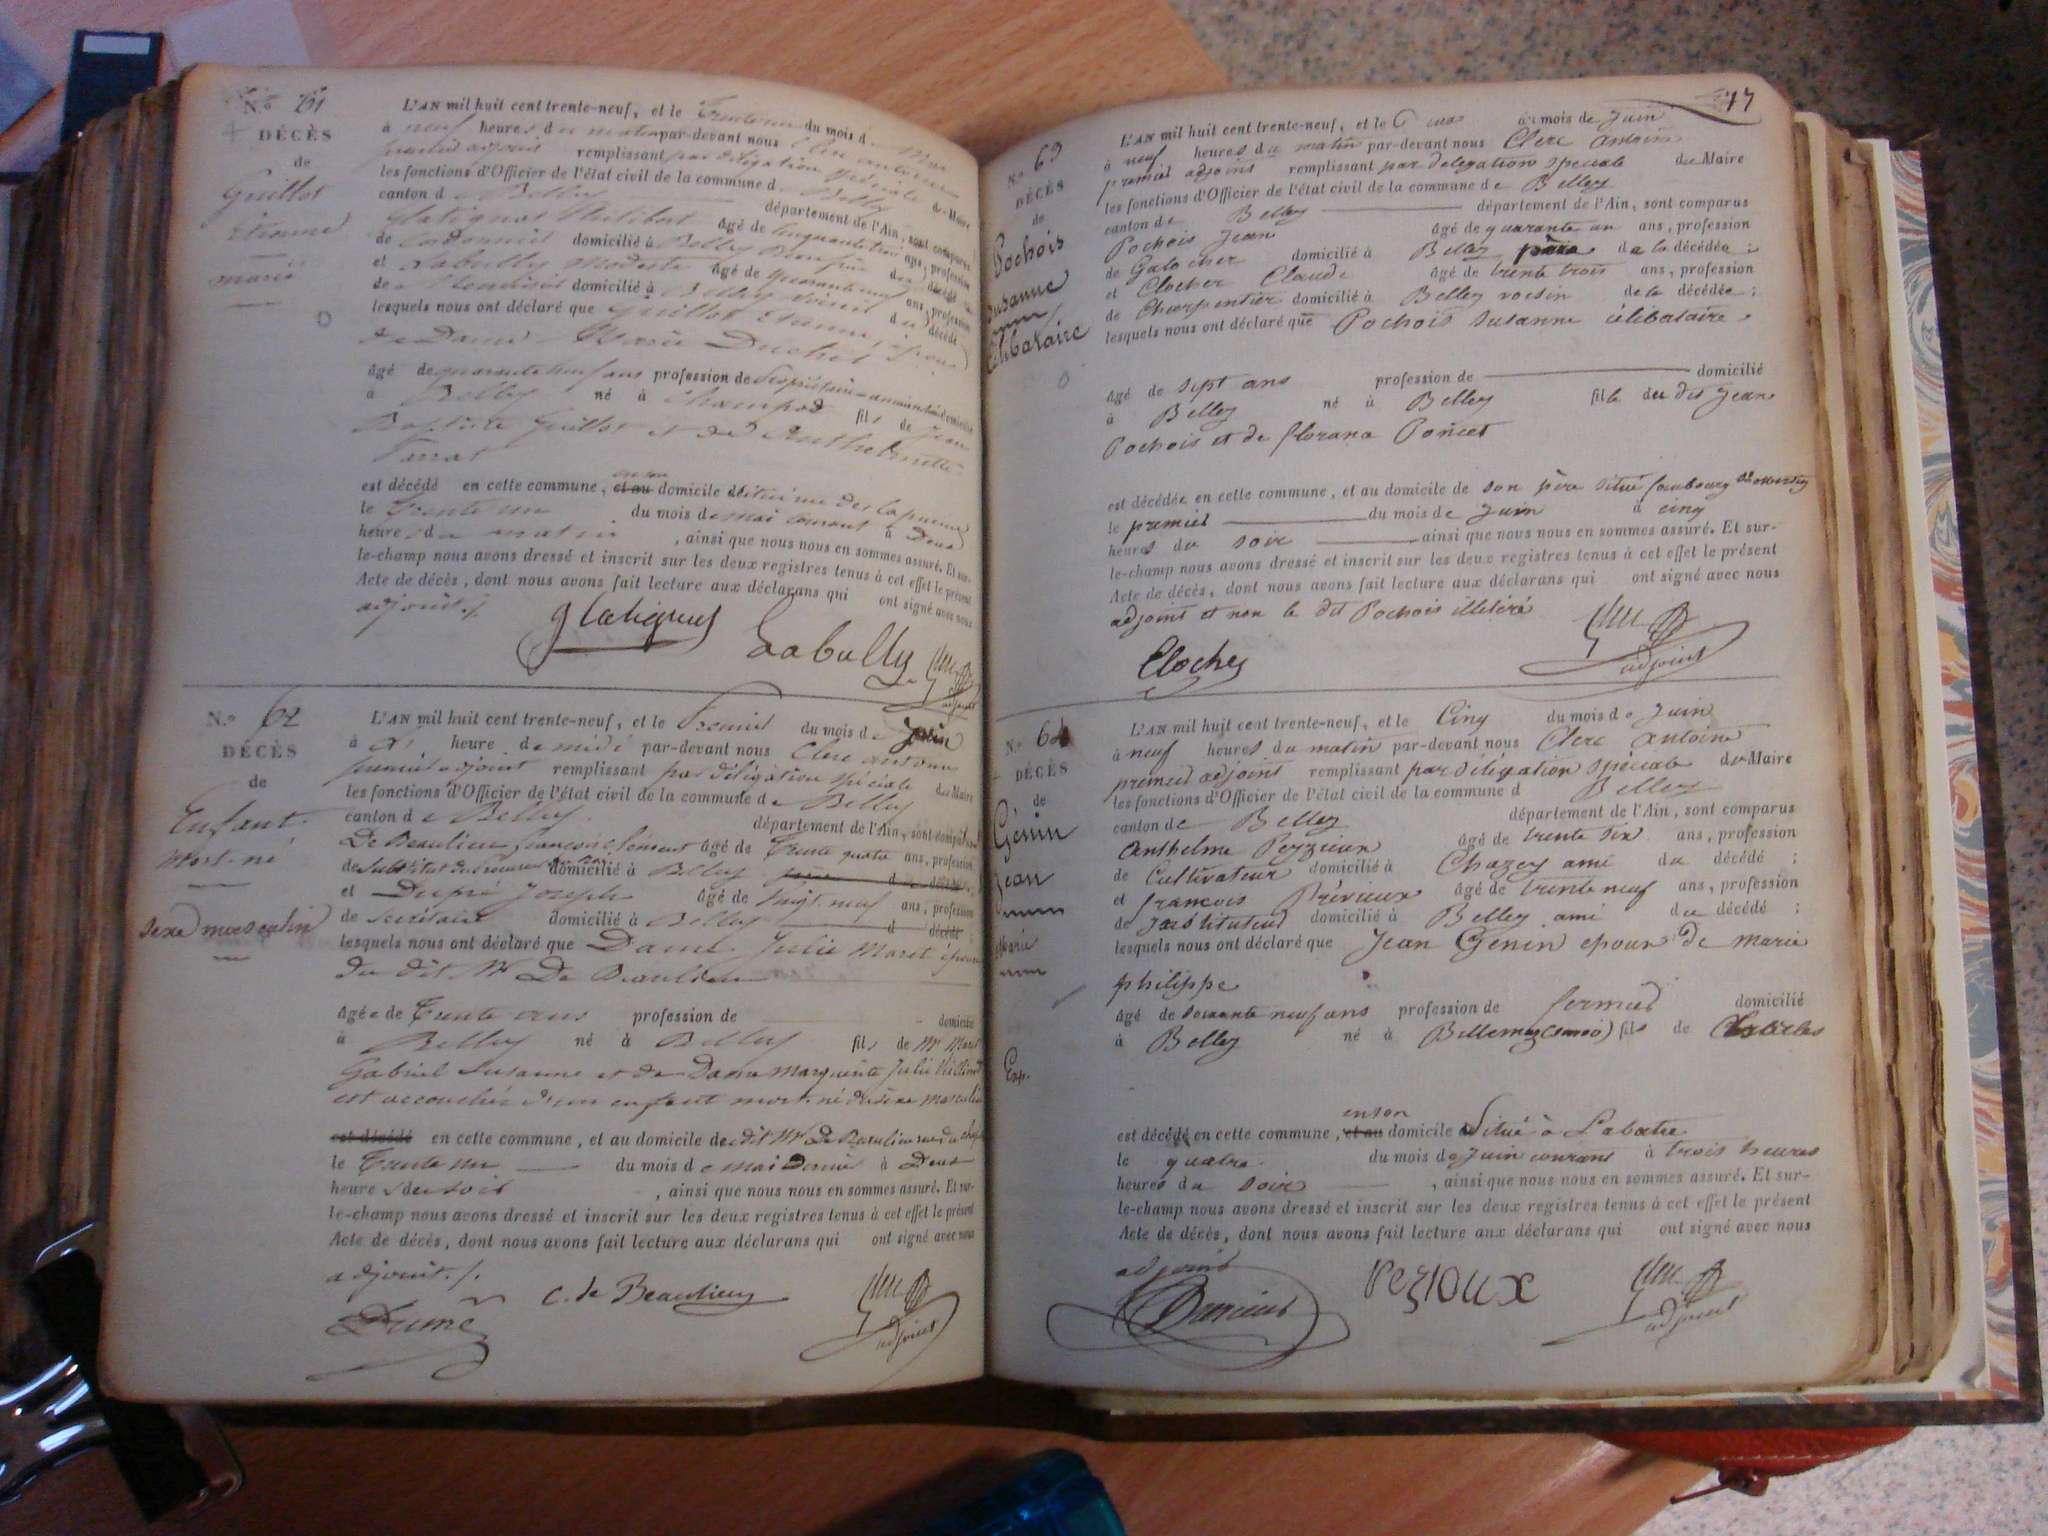 N.o 61
DÉCÈS
de
Guillot
Étienne
marié
L'AN mil huit cent trente-neuf, et le Trente un du mois de Mai
à neuf heures du matin par-devant nous Clerc antoine
premier adjoint remplissant par délégation spéciale du Maire
les fonctions d'Officier de l'état civil de la commune de Belley
canton de Belley département de l'Ain, sont comparus
Glatignat Philibert âgé de Cinquante trois ans, profession
de Cordonnier domicilié à Belley du décédé
et Labully Modeste âgé de quarante neuf ans, profession
de domicilié à Belley voisin du décédé
lesquels nous ont déclaré que Guillot Étienne, époux
de Dame Marie
âgé de quarante neuf ans profession de Propriétaire domicilié
à Belley né à Champod fils de Jean
Baptiste Guillot et de
est décédé en cette commune, et au en son domicile situé rue des Capucins
le Trente un du mois de mai courant à Deux
heures du matin, ainsi que nous nous en sommes assuré. Et sur-
le-champ nous avons dressé et inscrit sur les deux registres tenus à cet effet le présent
Acte de décès, dont nous avons fait lecture aux déclarans qui ont signé avec nous
adjoint./.
Glatignat Labully Clerc adjoint
N.o 62
DÉCÈS
de
Enfant
mort-né
sexe masculin
L'AN mil huit cent trente-neuf, et le Premier du mois de Juin
à heure de midi par-devant nous Clerc antoine
premier adjoint remplissant par délégation spéciale du Maire
les fonctions d'Officier de l'état civil de la commune de Belley
canton de Belley département de l'Ain, sont comparus
De Beaulieu françois Clément âgé de Trente quatre ans, profession
de Substitut domicilié à Belley
et Dupré Joseph âgé de Vingt neuf ans, profession
de secrétaire domicilié à Belley d décédé
lesquels nous ont déclaré que Dame Julie Maret épouse
du dit Mr De Beaulieu
âgée de Trente profession de domicilié
à Belley né à Belley fils de Mr Maret
Gabriel Susanne et de Dame Marguerite Julie
est accouchée d'un enfant mort-né du sexe masculin
est décédé en cette commune, et au domicile de dit Mr De Beaulieu rue du
le Trente un du mois de mai Dernier à Deux
heures du soir, ainsi que nous nous en sommes assuré. Et sur-
le-champ nous avons dressé et inscrit sur les deux registres tenus à cet effet le présent
Acte de décès, dont nous avons fait lecture aux déclarans qui ont signé avec nous
adjoint./.
C. de Beaulieu Clerc adjoint
77
N.o 63
DÉCÈS
de
Pochois
Susanne
Célibataire
L'AN mil huit cent trente-neuf, et le Deux du mois de Juin
à neuf heures du matin par-devant nous Clerc antoine
premier adjoint remplissant par delegation speciale du Maire
les fonctions d'Officier de l'état civil de la commune de Belley
canton de Belley département de l'Ain, sont comparus
Pochois Jean âgé de quarante un ans, profession
de Galocher domicilié à Belley père de la décédée;
et Clocher Claude âgé de trente trois ans, profession
de Charpentier domicilié à Belley voisin de la décédée;
lesquels nous ont déclaré que Pochois Susanne célibataire
âgé de sept ans profession de domicilié
à Belley né à Belley fille du dit Jean
Pochois et de florana Poncet
est décédée en cette commune, et au domicile de son père situé faubourg
le premier du mois de Juin à cinq
heures du soir ainsi que nous nous en sommes assuré. Et sur-
le-champ nous avons dressé et inscrit sur les deux registres tenus à cet effet le présent
Acte de décès, dont nous avons fait lecture aux déclarans qui ont signé avec nous
adjoint et non le dit Pochois illétéré
Clocher Clerc adjoint
N.o 64
DÉCÈS
de
Génin
Jean
Marié
Exp.
L'AN mil huit cent trente-neuf, et le Cinq du mois de Juin
à neuf heures du matin par-devant nous Clerc antoine
premier adjoint remplissant par délégation speciale du Maire
les fonctions d'Officier de l'état civil de la commune d Belley
canton de Belley département de l'Ain, sont comparus
Anthelme Peyzieux âgé de trente six ans, profession
de Cultivateur domicilié à Chazey ami du décédé;
et françois Prévieux âgé de trente neuf ans, profession
de Jnstituteur domicilié à Belley ami du décédé;
lesquels nous ont déclaré que Jean Génin epoux de marie
philippe
âgé de soixante neuf ans profession de fermier domicilié
à Belley né à Billemaz fils de Charles
est décédé en cette commune, et au en son domicile situé à Labatie
le quatre du mois de Juin courant à trois heures
heures du soir, ainsi que nous nous en sommes assuré. Et sur-
le-champ nous avons dressé et inscrit sur les deux registres tenus à cet effet le présent
Acte de décès, dont nous avons fait lecture aux déclarans qui ont signé avec nous
adjoint
Clerc adjoint